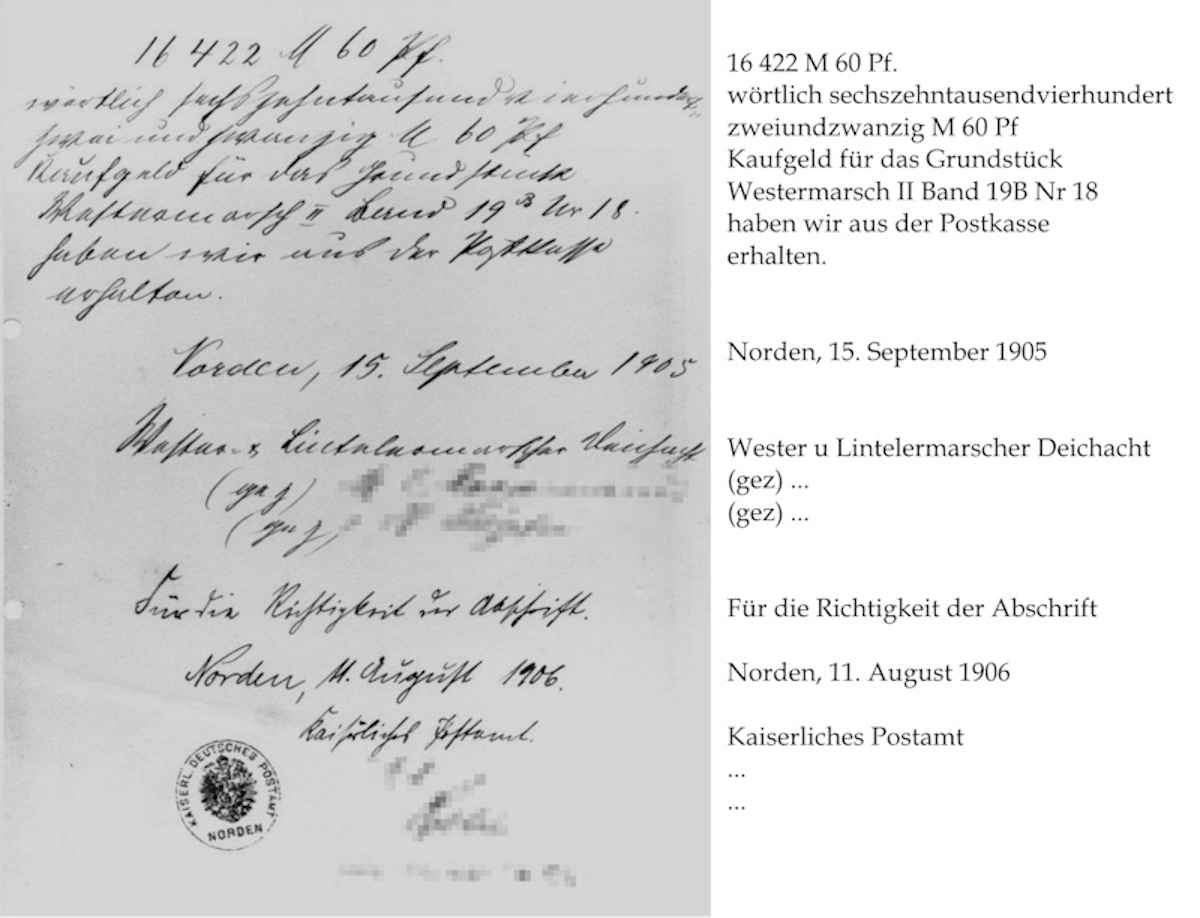 16 422 M 60 Pf.
wörtlich sechszehntausendvierhundert
zwei und zwanzig M 60 Pf
Kaufgeld für das Grundstück
Westermarsch II Band 19B Nr 18.
haben wir aus der Postkasse
erhalten.
Norden, 15. September 1905
Wester- u Lintelermarscher Deichacht
(gez)
(gez)
Für die Richtigkeit der Abschrift.
Norden, 11. August 1906.
Kaiserliches Postamt.
KAISERL. DEUTSCHES POSTAMT
NORDEN
16 422 M 60 Pf.
wörtlich sechszehntausendvierhundert
zweiundzwanzig M 60 Pf
Kaufgeld für das Grundstück
Westermarsch II Band 19B Nr 18
haben wir aus der Postkasse
erhalten.
Norden, 15. September 1905
Wester u Lintelermarscher Deichacht
(gez) ...
(gez) ...
Für die Richtigkeit der Abschrift
Norden, 11. August 1906
Kaiserliches Postamt
...
...